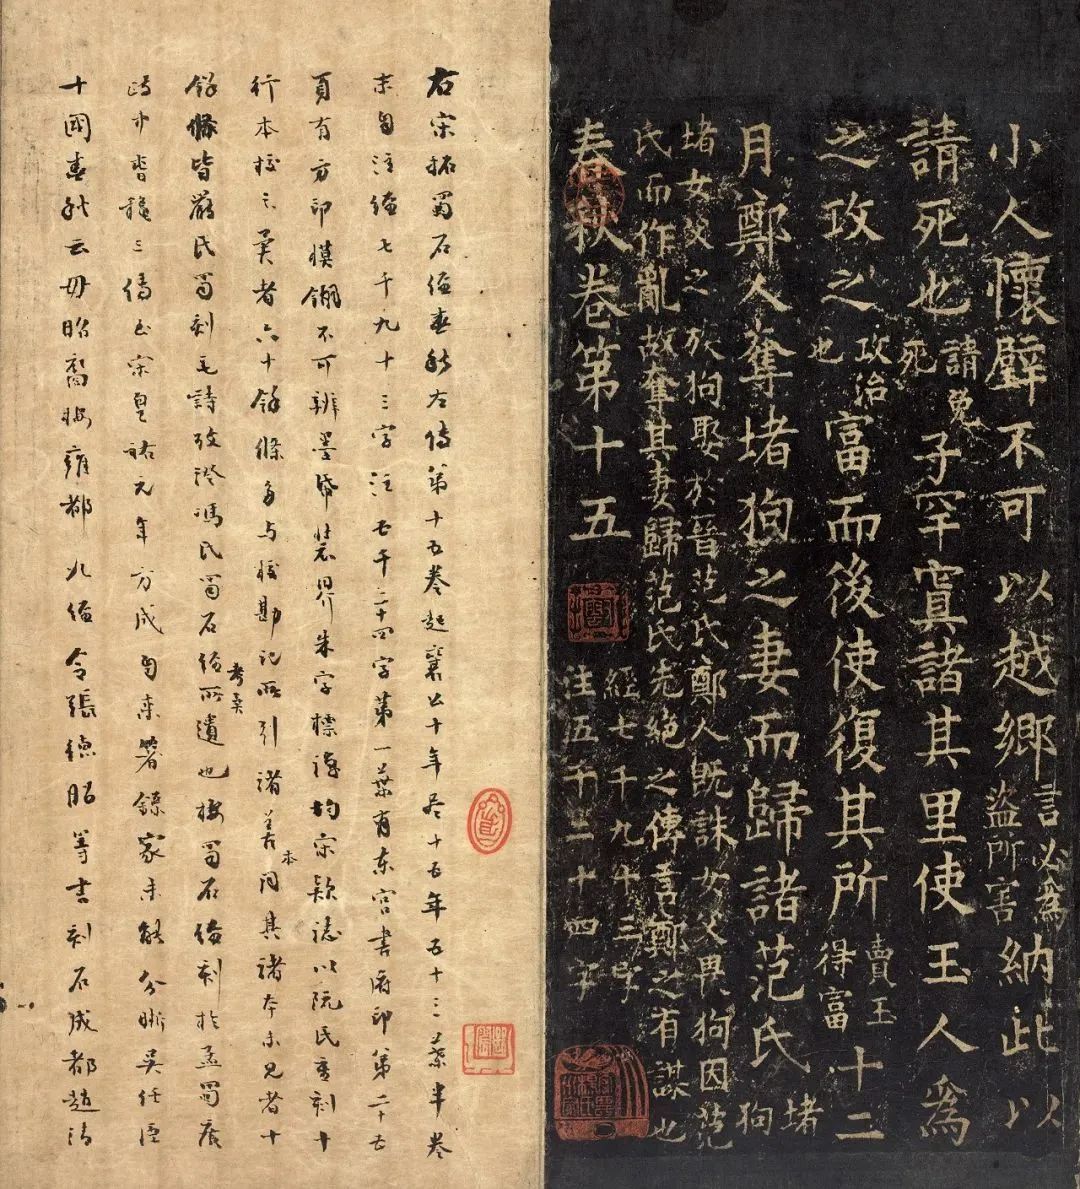 小人懷璧不可以越鄉言必為盜所害納此以
請死也請免死子罕寘諸其里使玉人為
之攻之攻治也富而後使復其所賣玉得富十二
月鄭人奪堵狗之妻而歸諸范氏堵狗
堵女父之族狗娶於晉范氏鄭人既誅女父畏狗因范
氏而作亂故奪其妻歸范氏先絕之傳言鄭之有謀也
春秋卷第十五
經七千九十三字
注五千二十四字
右宋拓蜀石經春秋左傳第十五卷起襄公十年尽十五年五十三葉半卷
末自注經七千九十三字注五千二十四字第一葉有东宫書府印第二十五
頁有方印模餬不可辨墨裝界朱字標識均宋款誌以阮氏重刻十
行本校之異者六十餘條多与校勘記所引諸善本同其諸本未見者十
餘條皆嚴氏蜀刻毛詩攷證馮氏蜀石經考異所遺也按蜀石經刻於孟蜀廣
三傳至宋皇祐元年方成自来著錄家未能分晰吳任臣
十國春秋云毋昭裔按雍都九經令張德昭等書刻石成都趙清